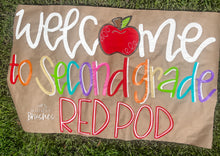 welcome
to second grade
Brushes
RED POD